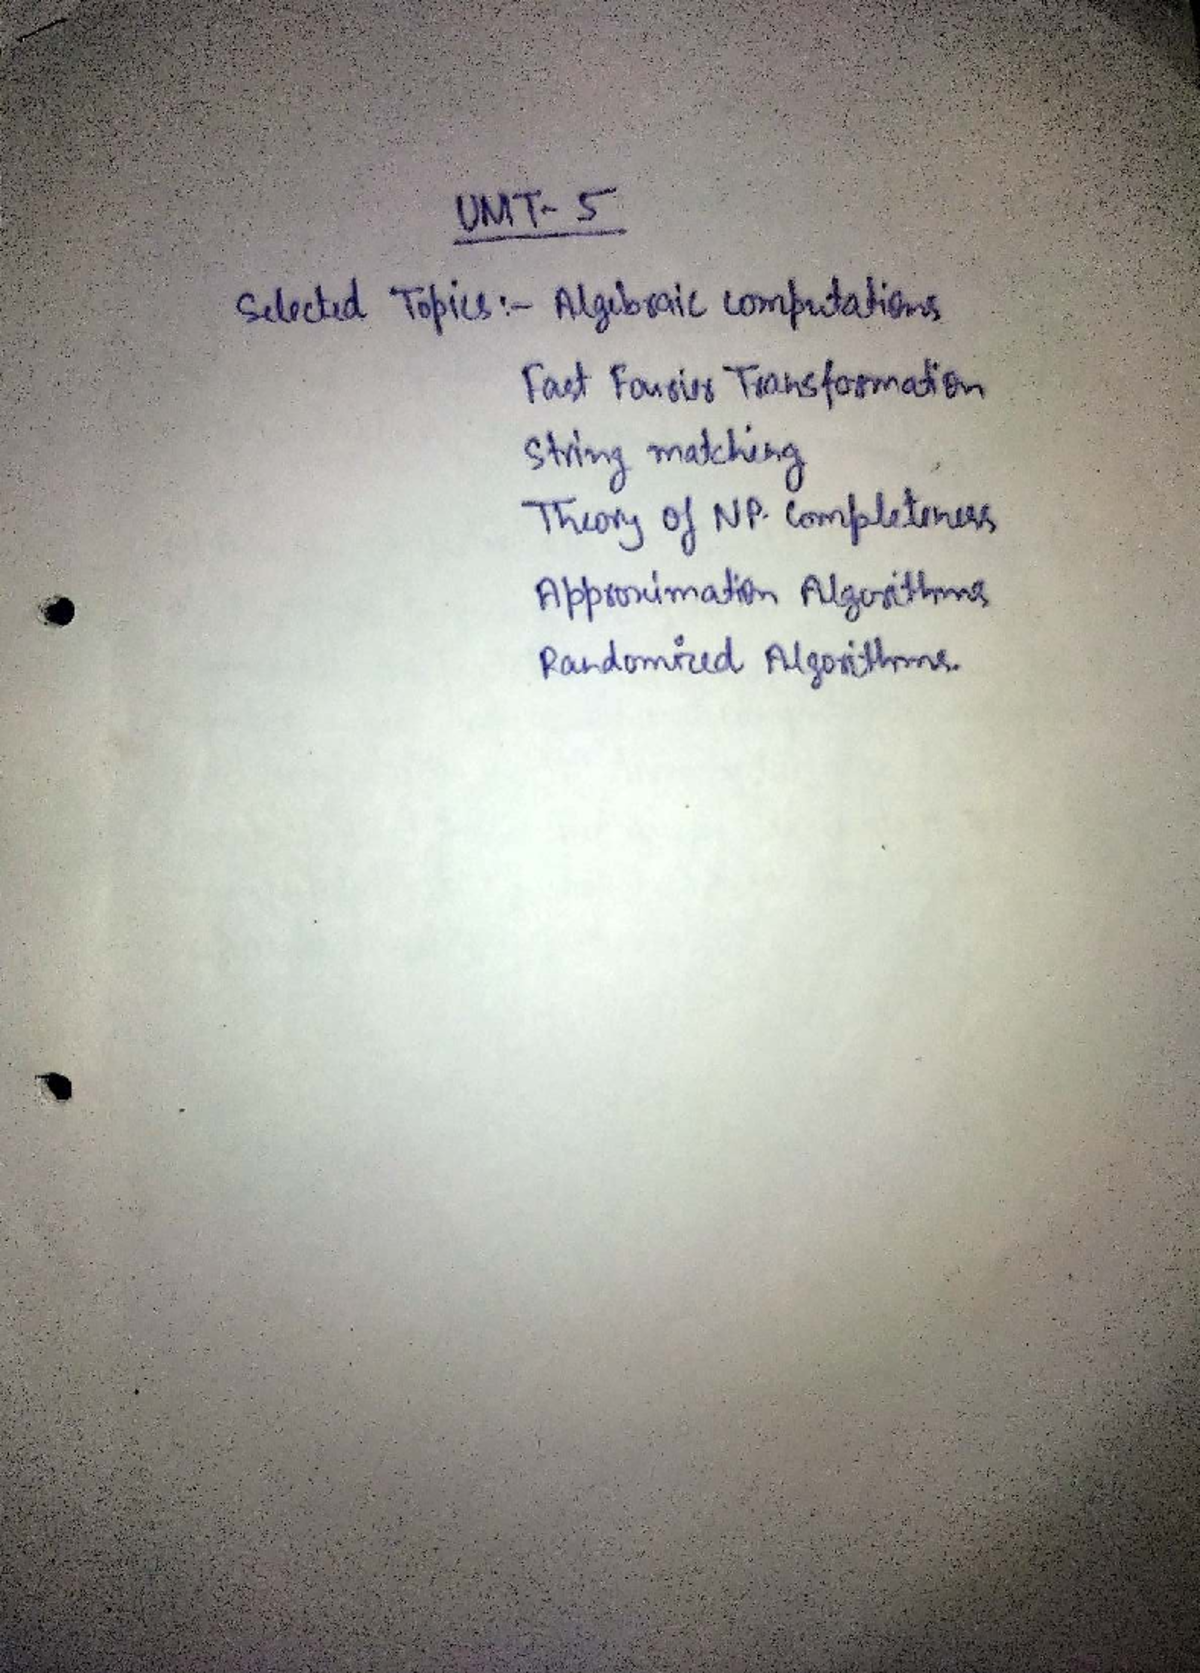 UNIT- 5
Selected Topics:- Algebraic Computations
Fast Fourier Transformation
String matching
Theory of NP- Completeness
Approximation Algorithms
Randomized Algorithms.